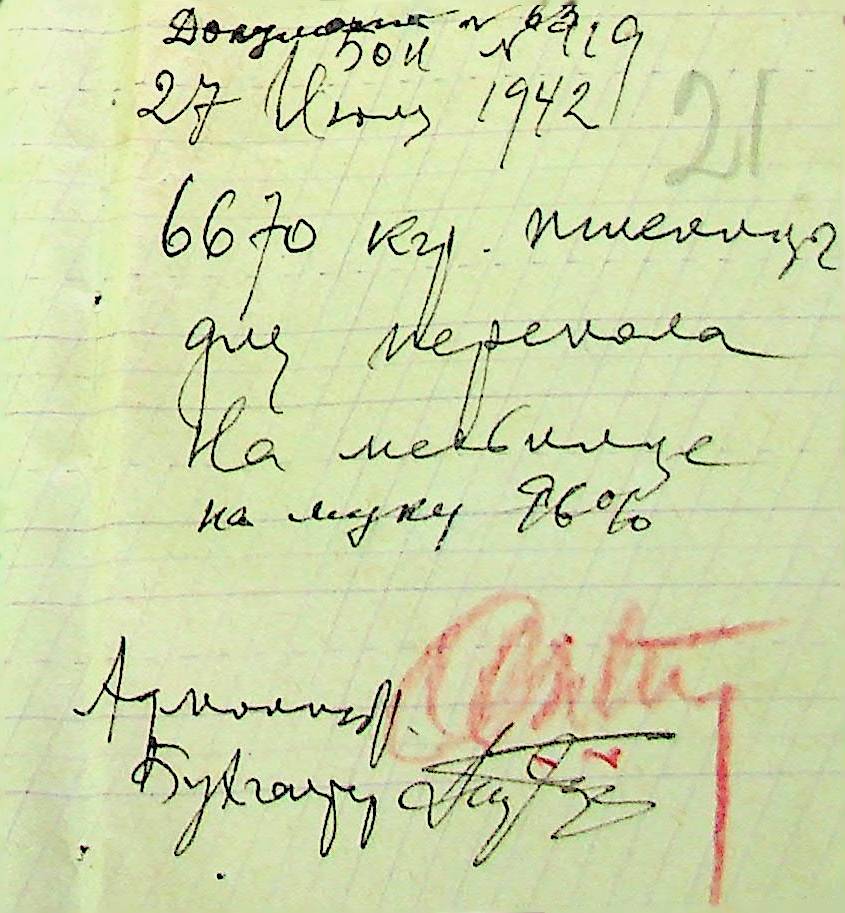 Документ №
Бон № 919
27 Июля 1942
21
6670 кг. пшеницы
для перемола
На мельнице
на муку 96%
Администр.
Бухгалтер